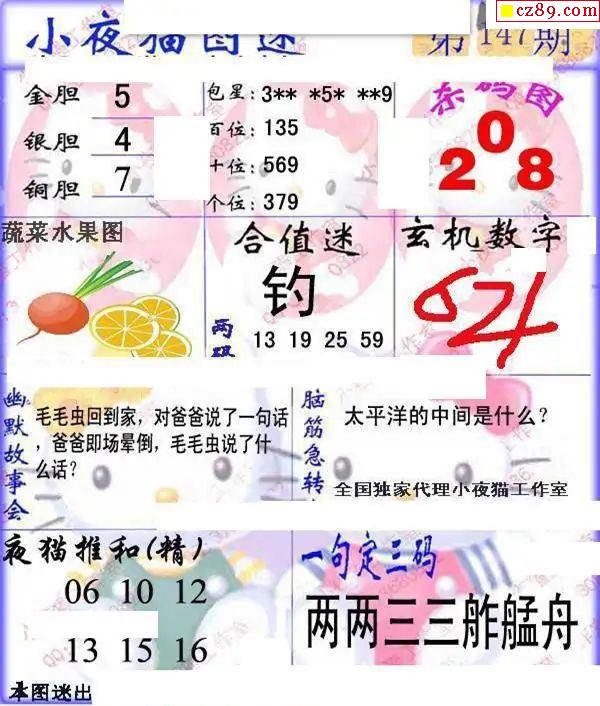 cz89.com
小夜猫图迷 第147期
金胆 5
银胆 4
铜胆 7
包星: 3** *5* **9
百位: 135
十位: 569
个位: 379
东码图
208
蔬菜水果图
合值迷
钓
两码
13 19 25 59
玄机数字
幽默故事会
毛毛虫回到家，对爸爸说了一句话
，爸爸即场晕倒，毛毛虫说了什
么话？
脑筋急转
太平洋的中间是什么？
全国独家代理小夜猫工作室
夜猫推和(精)
06 10 12
13 15 16
一句定三码
两两三三舴艋舟
本图迷出